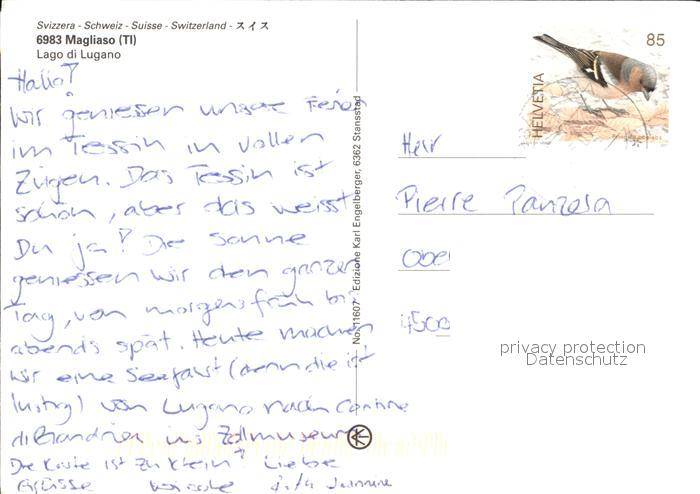 Svizzera - Schweiz - Suisse - Switzerland - スイス
6983 Magliaso (TI)
Lago di Lugano
Hallo!
Wir geniessen unsere Ferien
im Tessin in vollen
Zügen. Das Tessin ist
schön, aber das weisst
Du ja! Die Sonne
geniessen wir den ganzen
Tag, von morgens früh bis
abends spät. Heute machen
wir eine Seefahrt (denn die ist
lustig) von Lugano nach Cantine
di Gandria ins Zollmuseum
Die Karte ist zu klein! Liebe
Grüsse
No. 11607 Edizione Karl Engelberger, 6362 Stansstad
85
HELVETIA
Herr
Pierre
Obe
4500
privacy protection
Datenschutz